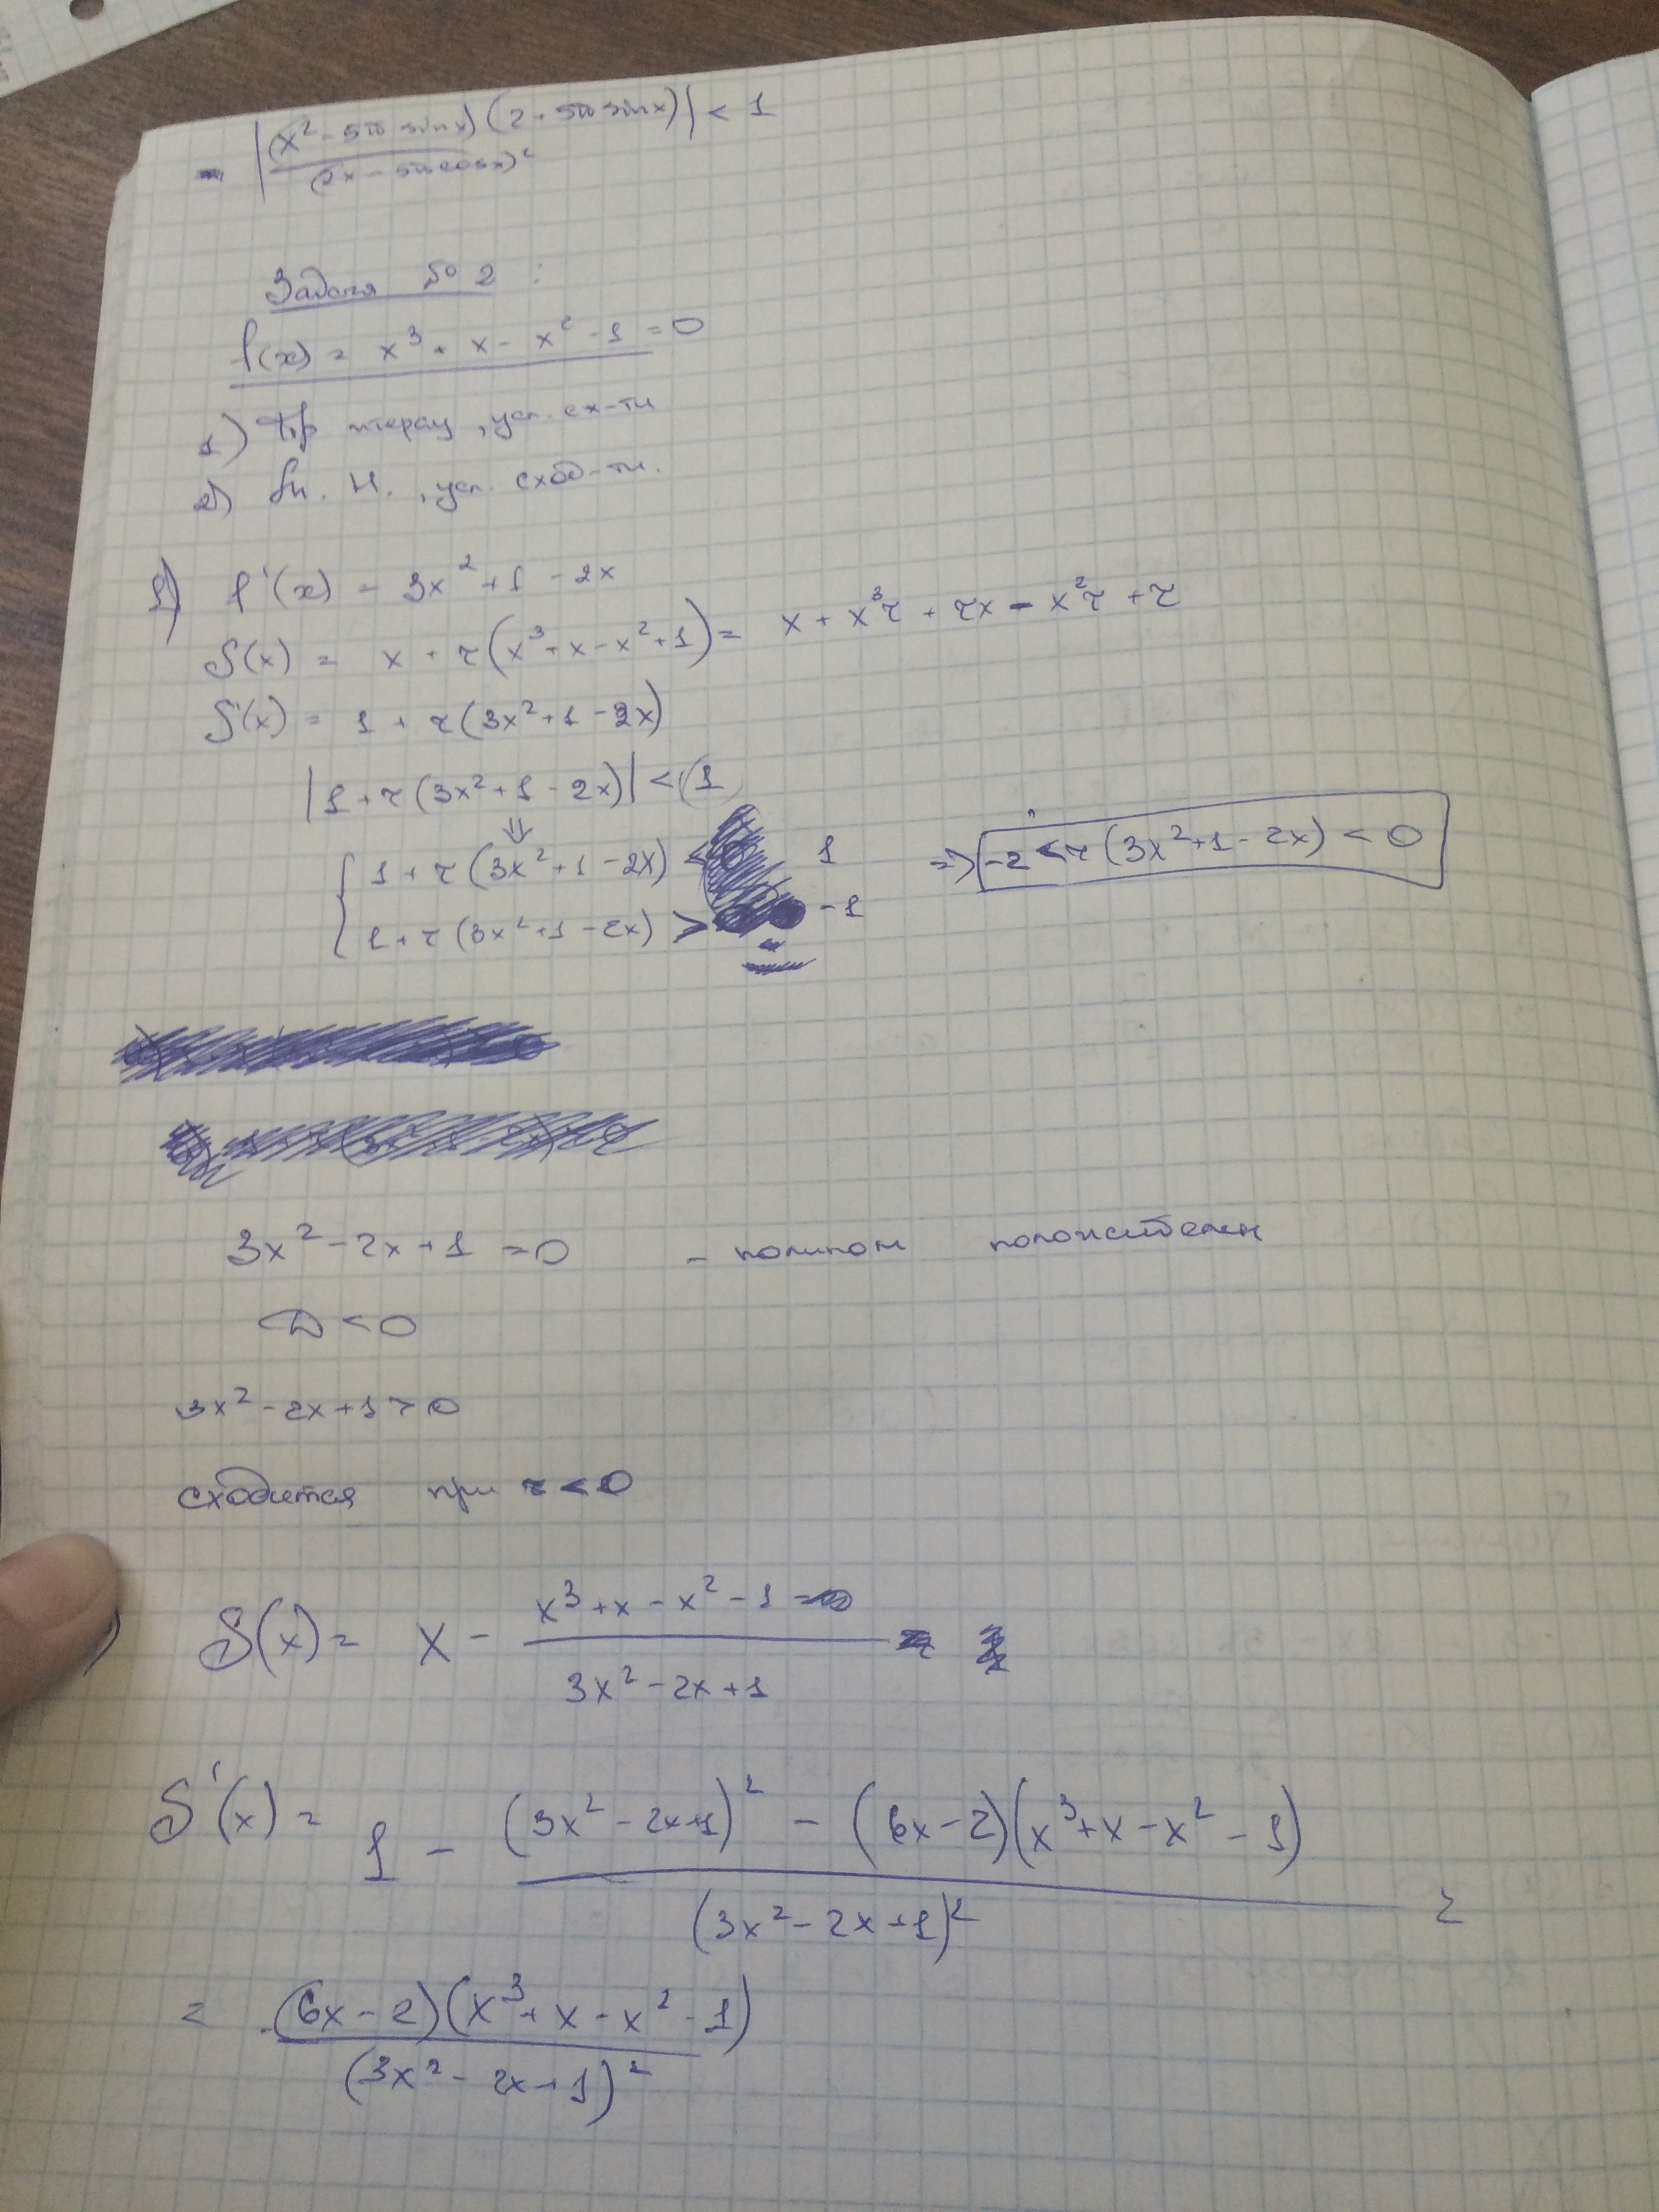 |(x² - 5π sinx)(2 + 5π sinx)| / (2x - 5π cosx)² < 1
Задача № 2 :
f(x) = x³ + x - x² - 1 = 0
1) итерац, усл. сх-ти
2) Н., усл. сход-ти.
1) f'(x) = 3x² + 1 - 2x
S(x) = x + τ(x³ + x - x² + 1) = x + x³τ + τx - x²τ + τ
S'(x) = 1 + τ(3x² + 1 - 2x)
|1 + τ(3x² + 1 - 2x)| < 1
⇓
{ 1 + τ(3x² + 1 - 2x) < 1 => -2 < τ(3x² + 1 - 2x) < 0
1 + τ(3x² + 1 - 2x) > -1
3x² - 2x + 1 = 0 - полином положителен
D < 0
3x² - 2x + 1 > 0
сходится при τ < 0
S(x) = x - (x³ + x - x² - 1) / (3x² - 2x + 1)
S'(x) = 1 - ((3x² - 2x + 1)² - (6x - 2)(x³ + x - x² - 1)) / (3x² - 2x + 1)² =
= (6x - 2)(x³ + x - x² - 1) / (3x² - 2x + 1)²